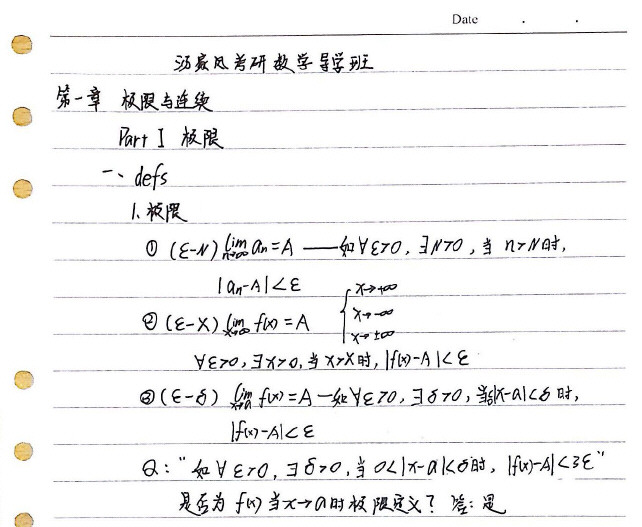 Date . .
汤家凤考研数学导学班
第一章 极限与连续
Part I 极限
一、defs
1. 极限
① (ε-N) lim n→∞ an = A —— 如∀ε>0, ∃N>0, 当 n>N时,
|an-A|<ε
② (ε-X) lim x→∞ f(x) = A { x→+∞ x→-∞ x→±∞
∀ε>0, ∃X>0, 当 x>X时, |f(x)-A|<ε
③ (ε-δ) lim x→a f(x) = A — 如∀ε>0, ∃δ>0, 当|x-a|<δ时,
|f(x)-A|<ε
Q: "如∀ε>0, ∃δ>0, 当 0<|x-a|<δ时, |f(x)-A|<3ε"
是否为 f(x) 当x→a时极限定义? 答: 是